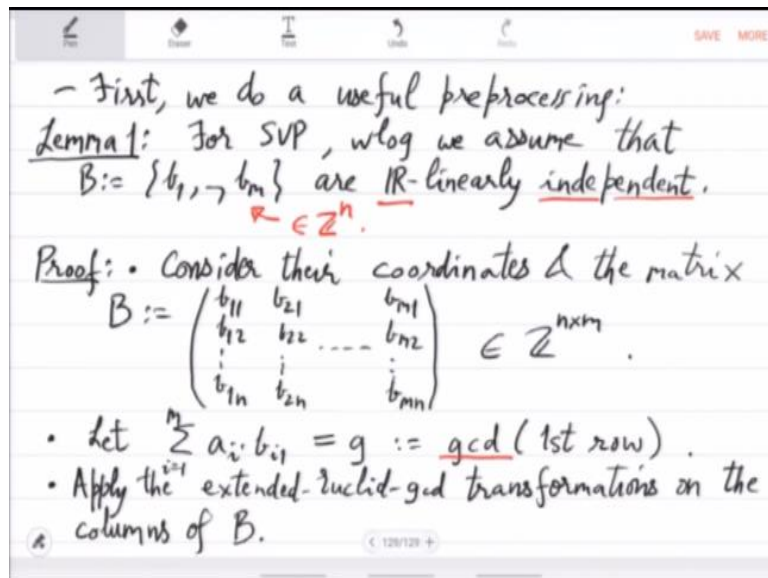 Pen Eraser Text Undo Redo SAVE MORE
- First, we do a useful preprocessing:
Lemma 1: For SVP, wlog we assume that
B := {b₁,¬ bₘ} are ℝ-linearly independent.
∈ ℤⁿ.
Proof: • Consider their coordinates & the matrix
B := ( b₁₁ b₂₁ bₘ₁
b₁₂ b₂₂ .... bₘ₂
⋮ ⋮ ⋮
b₁ₙ b₂ₙ bₘₙ ) ∈ ℤⁿˣᵐ .
• Let Σᵢ₌₁ᵐ aᵢ. bᵢ₁ = g := gcd (1st row) .
• Apply the extended-Euclid-gcd transformations on the
columns of B.
< 129/129 +